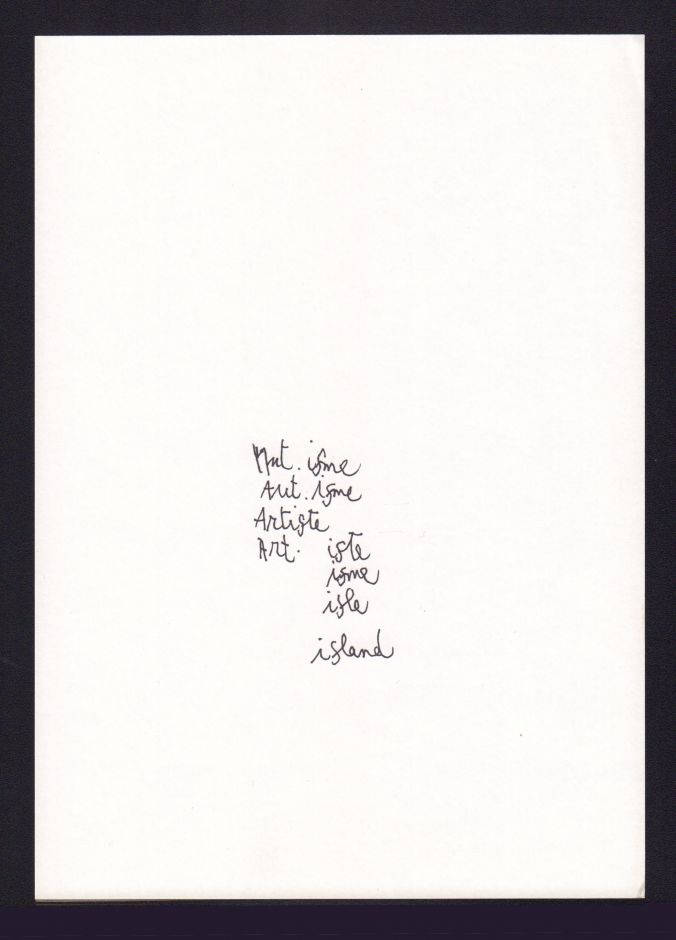 Mut. isme
Aut. isme
Artiste
Art. iste
isme
isle
island